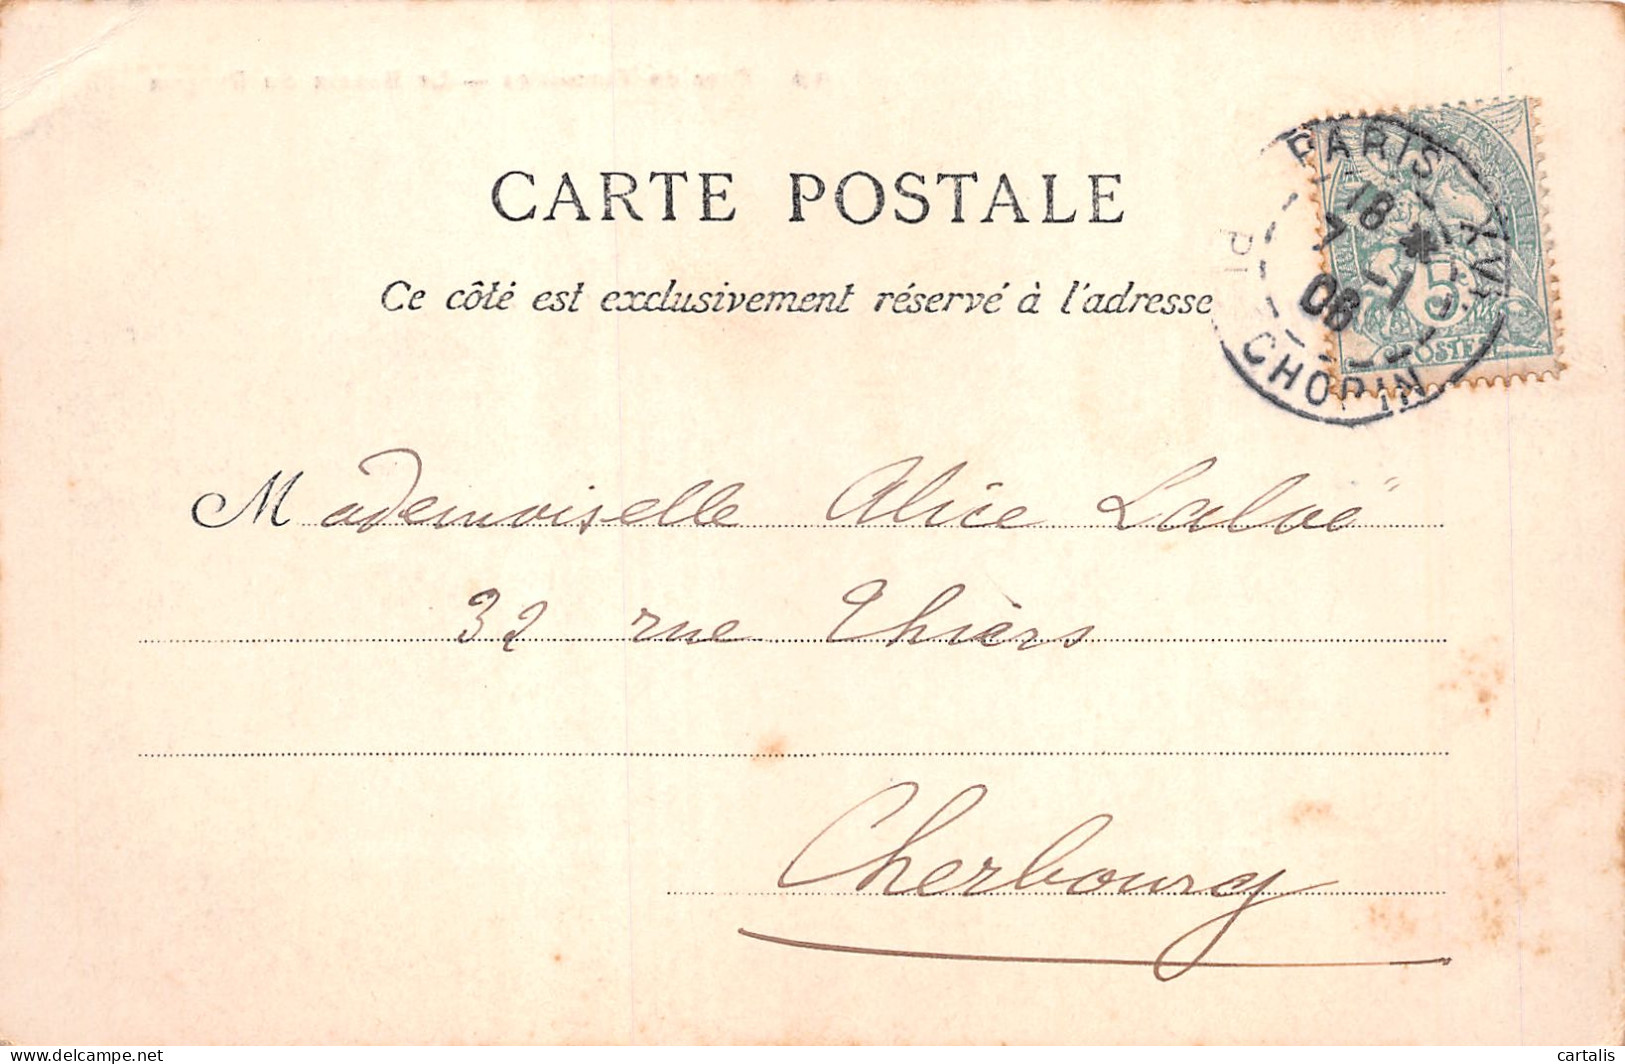 CARTE POSTALE
Ce côté est exclusivement réservé à l'adresse
PARIS XVI
18
7 -1
06
CHOPIN
5
POSTES
Mademoiselle Alice Laloë
32 rue Thièrs
Cherbourg
cartalis